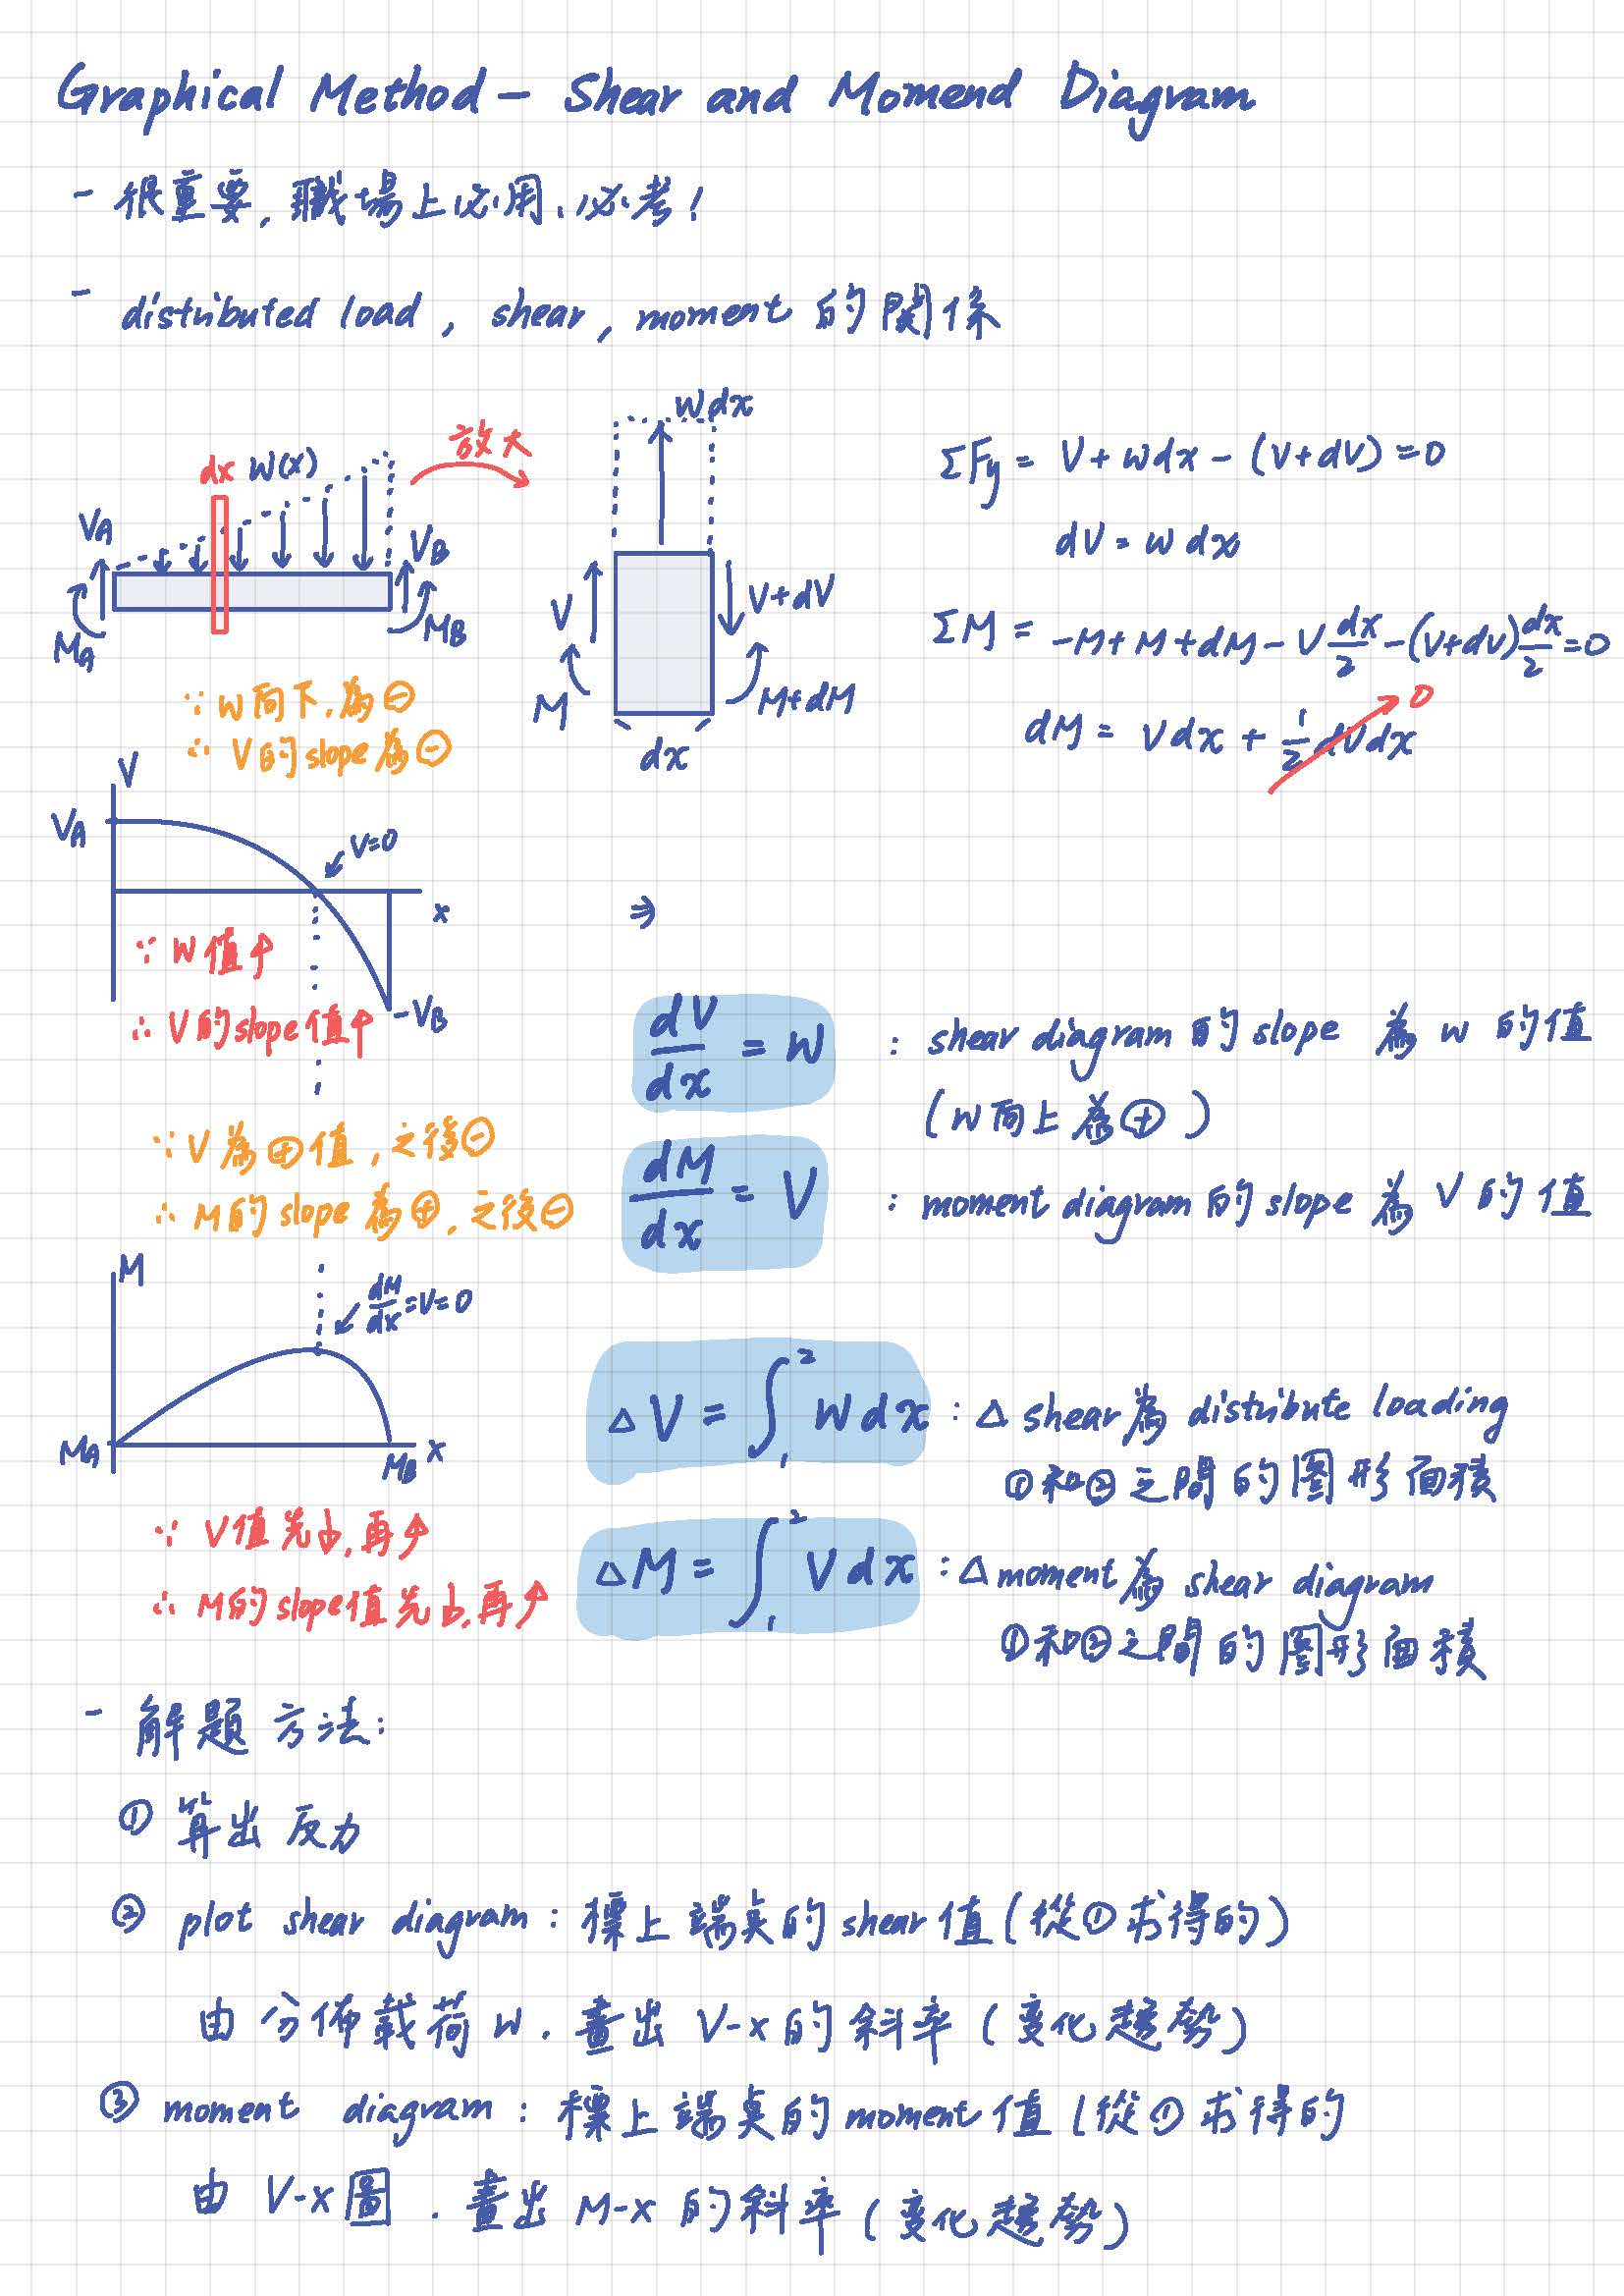 Graphical Method - Shear and Momend Diagram
- 很重要, 職場上必用、必考!
- distributed load, shear, moment 的關係
dx W(x)
放大
V_A
V_B
M_A
M_B
Wdx
V
V+dV
M
M+dM
dx
ΣFy = V + wdx - (V+dV) = 0
dV = w dx
ΣM = -M + M + dM - V dx/2 - (V+dV) dx/2 = 0
dM = Vdx + 1/2 dVdx 0
∵ W向下, 為⊖
∴ V的slope為⊖
V
V_A
V=0
x
-V_B
∵ W值↑
∴ V的slope值↑
⇒
dV/dx = W : shear diagram 的 slope 為 w 的值
(W向上為⊕)
dM/dx = V : moment diagram 的 slope 為 V 的值
∵ V為⊕值, 之後⊖
∴ M的slope為⊕, 之後⊖
M
dM/dx = V = 0
M_A
M_B x
∵ V值先↓, 再↑
∴ M的slope值先↓, 再↑
△V = ∫₁² Wdx : △ shear 為 distribute loading
①和②之間的圖形面積
△M = ∫₁² Vdx : △ moment 為 shear diagram
①和②之間的圖形面積
- 解題方法:
① 算出反力
② plot shear diagram : 標上端點的 shear 值 (從①求得的)
由分佈載荷 w, 畫出 V-x 的斜率 (變化趨勢)
③ moment diagram : 標上端點的 moment 值 (從①求得的
由 V-x 圖, 畫出 M-x 的斜率 (變化趨勢)